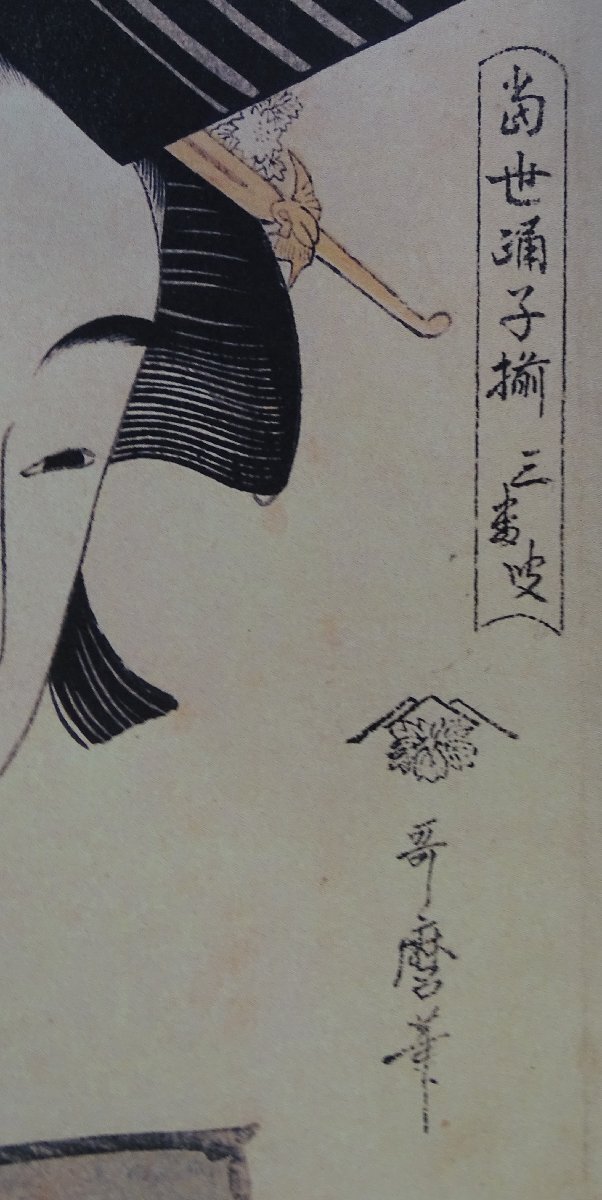 當世踊子揃 三番叟
哥麿筆